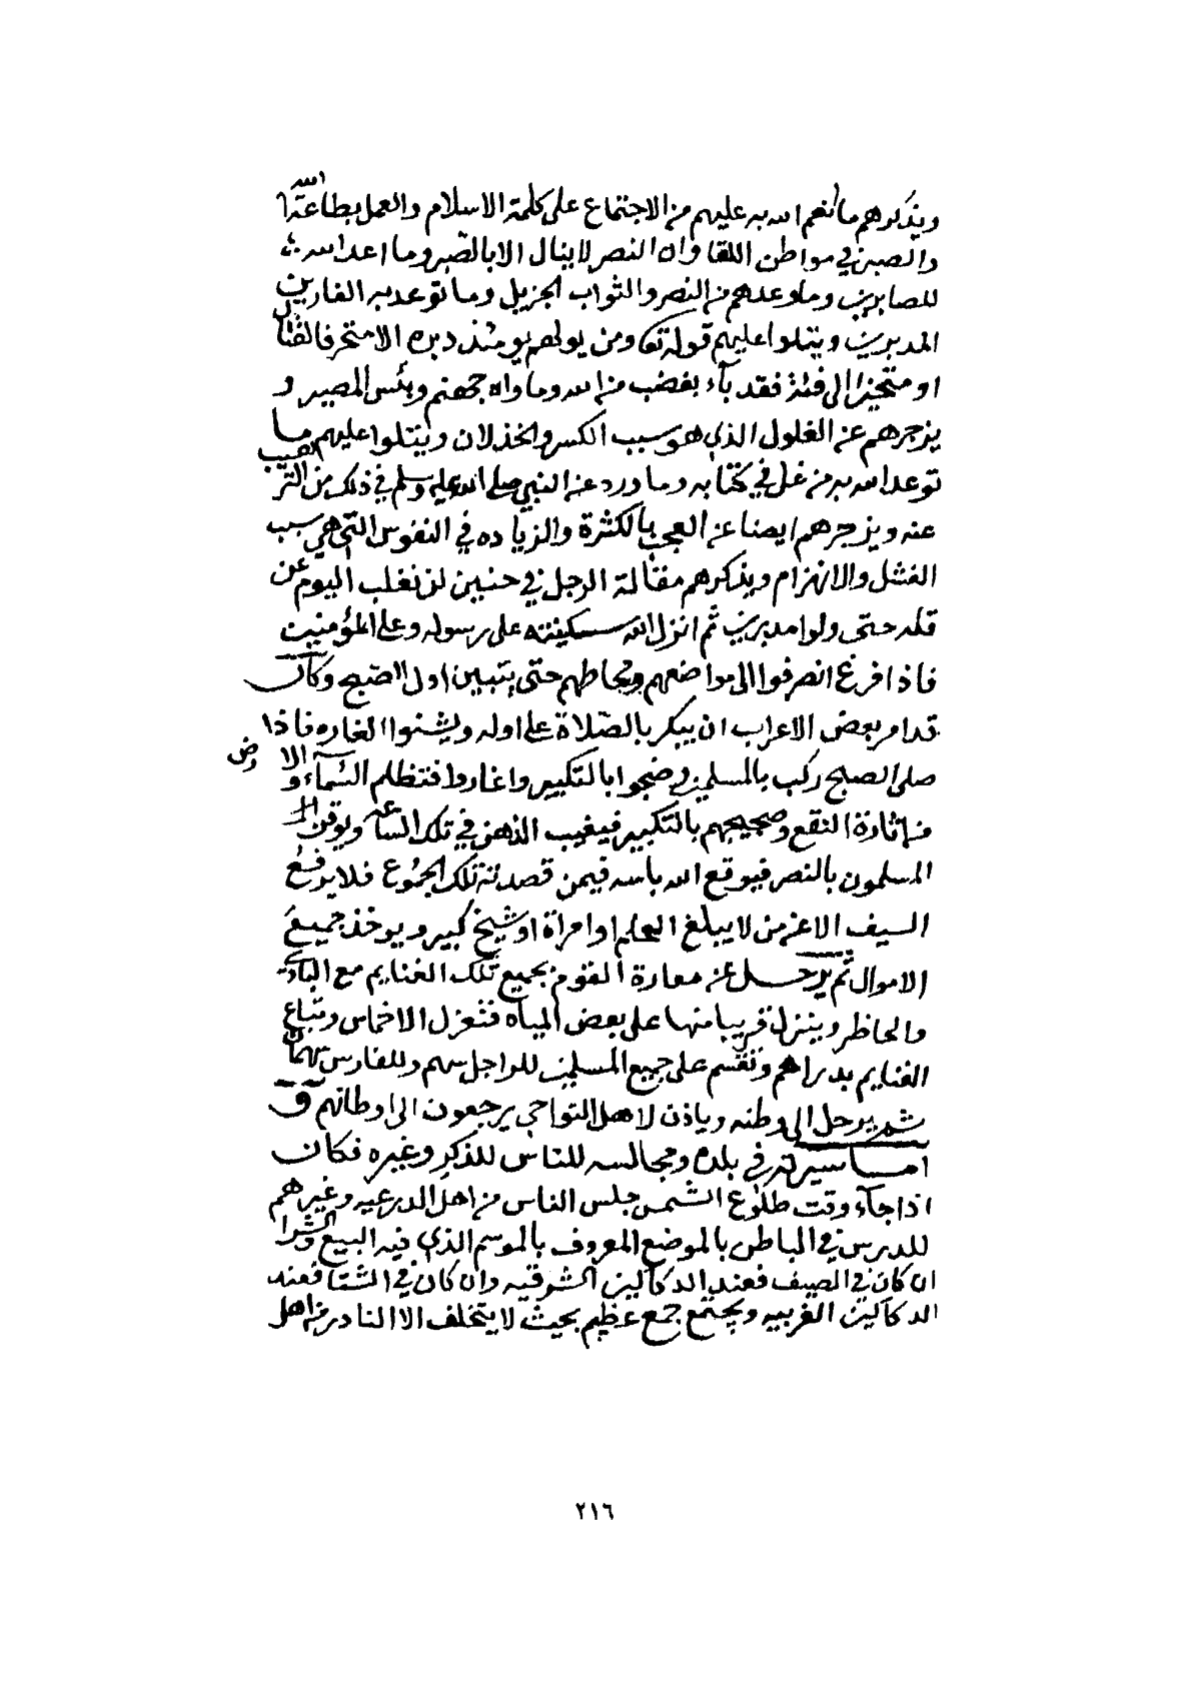 ويذكرهم ما انعم الله به عليهم من الاجتماع على كلمة الاسلام والعمل بطاعة الله
والصبر في مواطن اللقا وان النصر لا ينال الا بالصبر وما اعد الله
للصابرين وما وعدهم من النصر والثواب الجزيل وما توعد به الفارين
المدبرين ويتلوا عليهم قوله تعا ومن يولهم يومئذ دبره الا متحرفا لقتال
او متحيزا الى فئة فقد بآء بغضب من الله وماواه جهنم وبئس المصير و
يزجرهم عن الغلول الذي هو سبب الكسر والخذلان ويتلوا عليهم ما
توعد الله به من غل في كتابه وما ورد عن النبي صلى الله عليه وسلم في ذلك من الترهيب
عنه ويزجرهم ايضا عن العجب بالكثرة والزياده في النفوس التي هي سبب
الفشل والانهزام ويذكرهم مقالة الرجل في حنين لن نغلب اليوم عن
قله حتى ولوا مدبرين ثم انزل الله سكينته على رسوله وعلى المؤمنين
فاذا فرغ انصرفوا الى مواضعهم ومحاطهم حتى يتبين اول الصبح وكان
قد امر بعض الاعراب ان يبكر بالصلاة على اوله ويشنوا الغاره فاذا
صلى الصبح ركب بالمسلمين وضجوا بالتكبير واغاروا فتظلم السمآء والارض
من اثارة النقع وضجيجهم بالتكبير فيغيب الذهن في تلك الساعه ويوقن
المسلمون بالنصر فيوقع الله باسه فيمن قصدته تلك الجموع فلا يرفع
السيف الا عن من لا يبلغ الحلم او امراة او شيخ كبير ويوخذ جميع
الاموال ثم يرحل عن معارة القوم بجميع تلك الغنايم مع البادية
والحاظر وينزل قريبا منها على بعض المياه فتعزل الاخماس وتباع
الغنايم بدراهم وتقسم على جميع المسلمين للراجل سهم وللفارس سهمان
ثم يرحل الى وطنه وياذن لاهل النواحي يرجعون الى اوطانهم
اما سيرته في بلده ومجالسه للناس للذكر وغيره فكان
اذا جآء وقت طلوع الشمس جلس الناس من اهل الدرعيه وغيرهم
للدرس في الباطن بالموضع المعروف بالموسم الذي فيه البيع والشرا
ان كان في الصيف فعند الدكاكين الشرقيه وان كان في الشتا فعند
الدكاكين الغربيه ويجتمع جمع عظيم بحيث لا يتخلف الا النادر من اهل
٢١٦